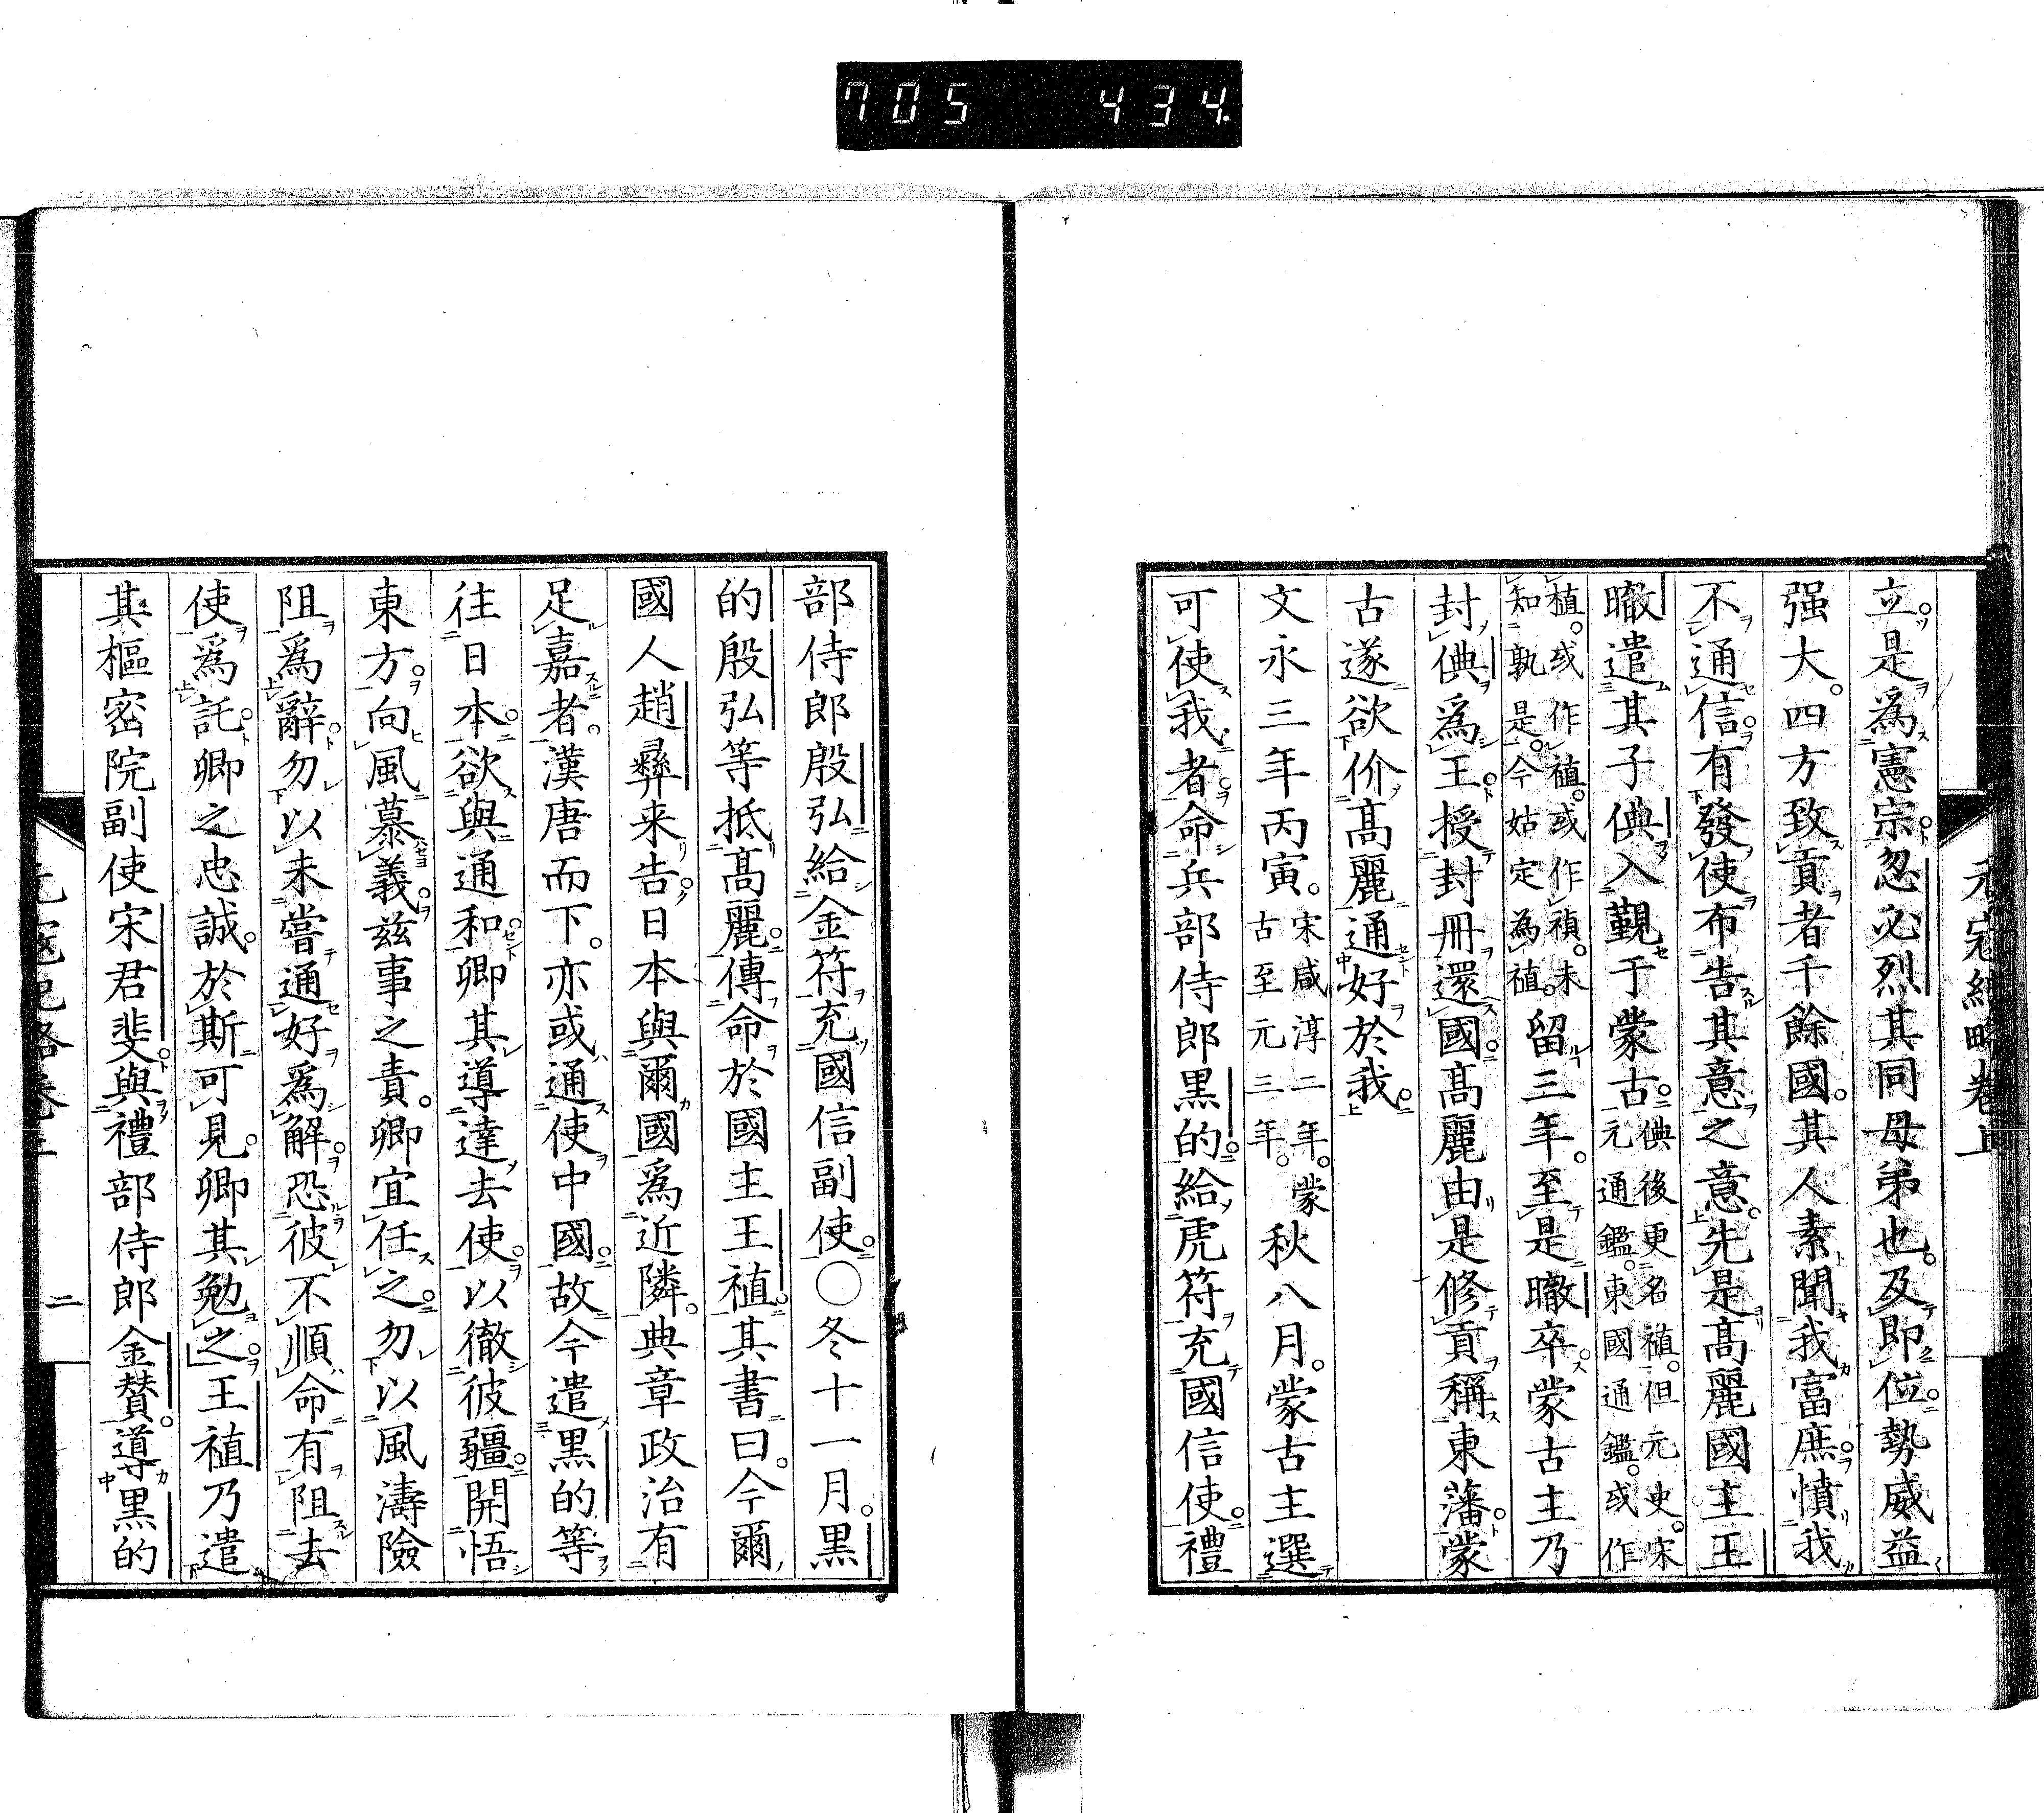 705 434.
元寇紀略卷上
立是爲憲宗忽必烈其同母弟也及即位勢威益
强大四方致貢者千餘國其人素聞我富庶憤我
不通信有發使布告其意之意先是高麗國主王
㬚遣其子倎入覲于蒙古倎後更名禃但元史宋元通鑑東國通鑑或作
植或作禃或作禎未知孰是今姑定為禃留三年至是㬚卒蒙古主乃
封倎爲王授封冊還國高麗由是修貢稱東藩蒙
古遂欲价高麗通好於我
文永三年丙寅宋咸淳二年蒙古至元三年秋八月蒙古主選
可使我者命兵部侍郎黒的給虎符充國信使禮
部侍郎殷弘給金符充國信副使○冬十一月黒
的殷弘等抵高麗傳命於國主王禃其書曰今爾
國人趙彝来告日本與爾國爲近隣典章政治有
足嘉者漢唐而下亦或通使中國故今遣黒的等
往日本欲與通和卿其導達去使以徹彼疆開悟
東方向風慕義玆事之責卿宜任之勿以風濤險
阻爲辭勿以未嘗通好爲解恐彼不順命有阻去
使爲託卿之忠誠於斯可見卿其勉之王禃乃遣
其樞密院副使宋君斐與禮部侍郎金賛導黒的
二